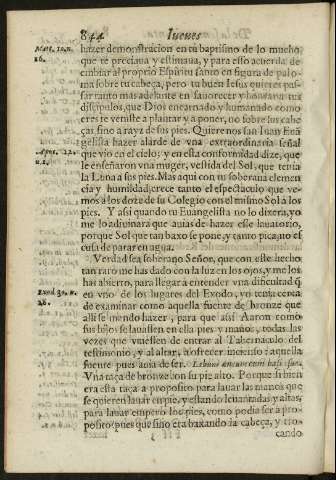 844 Jueues
hazer demonstracion en tu baptismo de lo mucho
que te preciaua y estimaua, y para esso acuerda de
embiar al proprio Espiritu santo en figura de palo-
ma sobre tu cabeça, pero tu buen Iesus quieres pas-
sar tanto mas adelante en fauorecer y honrar a tus
discipulos, que Dios encarnado y humanado como
eres te veniste a plantar y a poner, no sobre las cabe
ças, sino a rayz de sus pies. Quiere nos san Iuan Euã
gelista hazer alarde de vna extraordinaria señal
que vio en el cielo; y en esta conformidad dize, que
le enseñaron vna muger, vestida del Sol, que tenia
la Luna a sus pies. Mas aqui con tu soberana clemen
cia y humildad, crece tanto el espectaculo que ve-
mos a los doze de su Colegio con el mismo Sol á los
pies. Y assi quando tu Euangelista no lo dixera, yo
me lo adiuinara que auias de hazer esse lauatorio,
porque Sol que tan baxo se pone, y tanto pica, no es
cusa de parar en agua.
Verdad sea soberano Señor, que con este hecho
tan raro me has dado con la luz en los ojos, y me los
has abierto, para llegar a entender vna dificultad q̃
en vno de los lugares del Exodo, yo tenia cerca
de examinar como aquella fuente de bronze que
alli se mando hazer, para que assi Aaron como
sus hijos se lauassen en ella pies y manos, todas las
vezes que vuiessen de entrar al Tabernaculo del
testimonio, y al altar, a ofrecer incienso: aquella
fuente pues auia de ser. Labium æneum cum basi sua.
Vna taça de bronze con su pie alto. Porque si bien
era esta taça a proposito para lauar las manos que
se quieren lauar en pie, y estando leuantadas y altas,
para lauar empero los pies, como podia ser a pro-
posito: pues que sino era baxando la cabeça, y tro-
cando